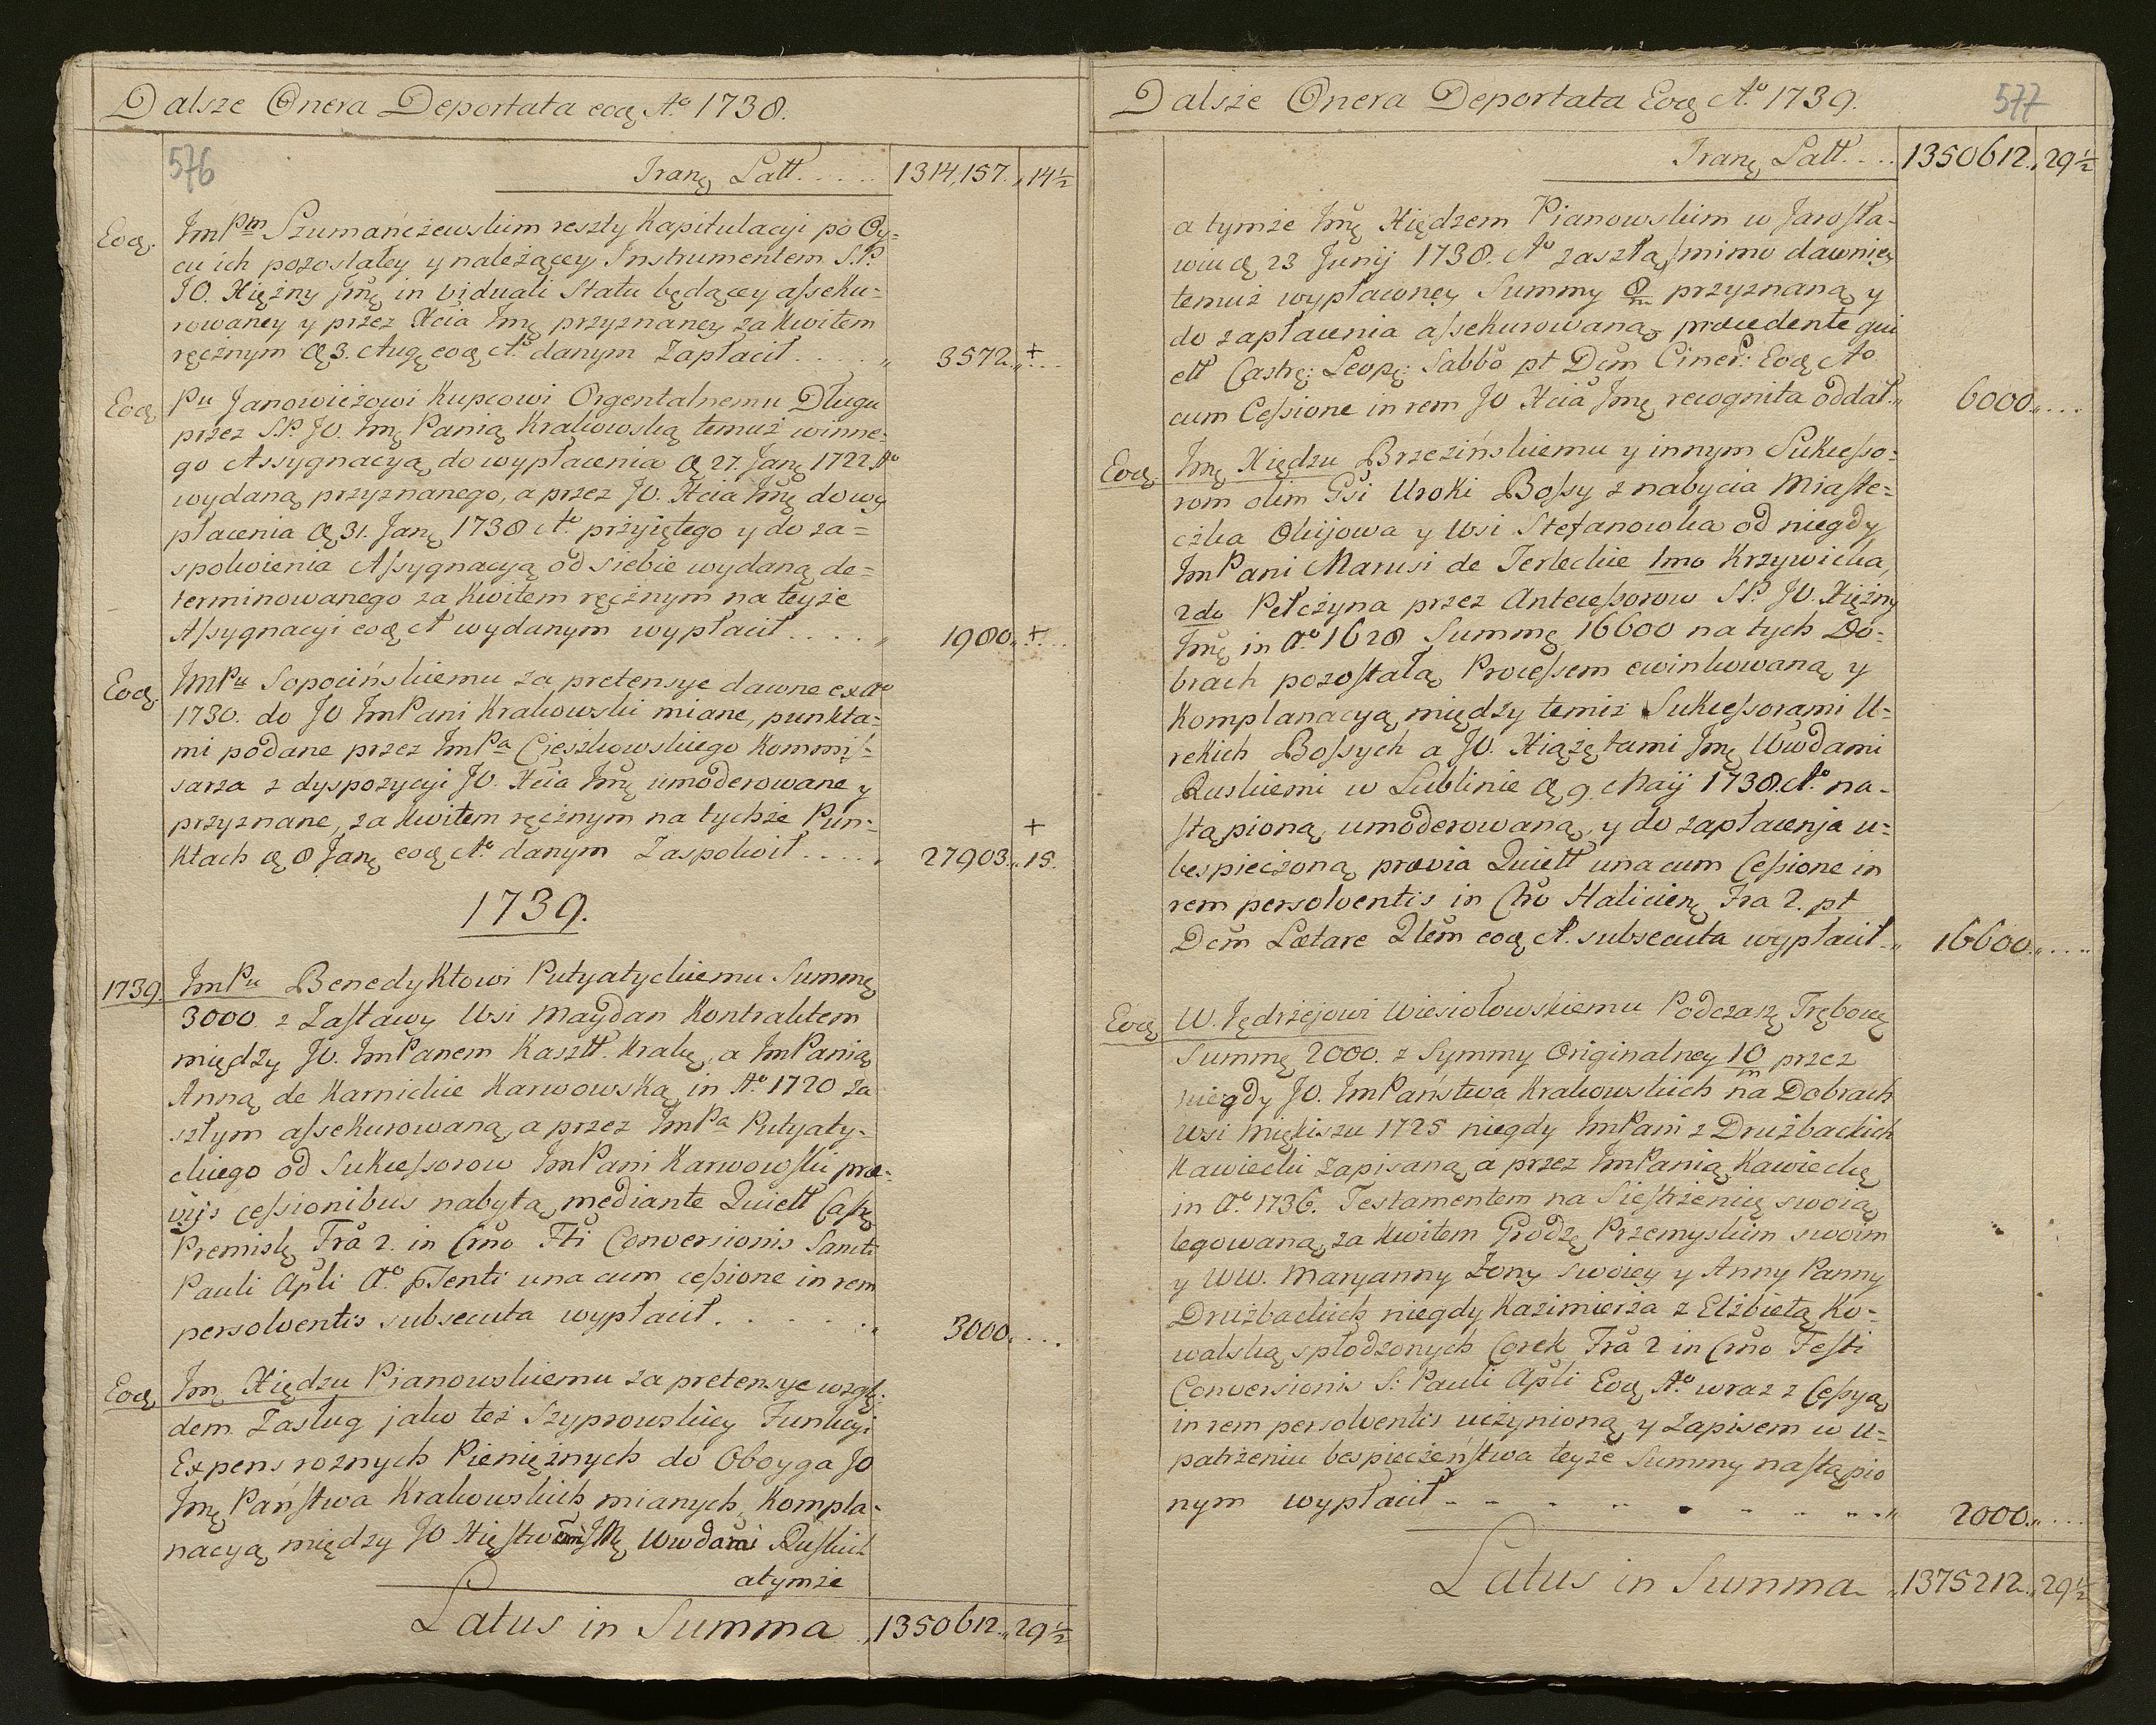 Dalsze Onera Deportata eoq Aº 1738.
576
Tranę Latt. . . . . 1314,157. „ 14½
Eoq. ImPm Szumańczewskim reszty Kapitulacyi po Oy=
cu ich pozostałey y należącey Instrumentem S.P.
JO. Xiężny Jmę in viduali statu będącey asseku=
rowaney y przez Xcia Jmę przyznaney za Kwitem
ręcznym ą 3. Augę eoq Aº danym Zapłacił . . . „ 3572. „ + . .
Eoq. Pu Janowiczowi Kupcowi Orgentalnemu Długu
przez S.P. JO. Jmę Panią Krakowską temuż winne=
go Assygnacyą do wypłacenia ą 27. Janę 1722. Aº
wydaną przyznanego, a przez JO. Xcia Jmę do wy
płacenia ą 31. Janę 1738 Aº przyiętego y do za=
spokoienia Assygnacyą od siebie wydaną de=
terminowanego za Kwitem ręcznym na teyże
Assygnacyi eoq A wydanym wypłacił . . . . „ 1980. „ + . .
Eoq. ImPu Sopocińskiemu za pretensye dawne ex Aº
1730. do JO ImPani Krakowski miane, punkta=
mi podane przez ImPa Cieszkowskiego Kommis=
sarza z dyspozycyi JO. Xcia Jmę umoderowane y
przyznane, za Kwitem ręcznym na tychże Pun=
ktach ą 8 Janę eoq Aº danym Zaspokoił . . . . . 27903. „ 15. +
1739.
1739 ImPu Benedyktowi Putyatyckiemu Summę
3000. z Zastawy Wsi Maydan Kontraktem
między JO. ImPanem Kasztt. Krakę, a ImPanią
Anną de Karnickie Karwowską in Aº 1720 za
szłym assekurowaną, a przez ImPa Putyaty=
ckiego od Sukcessorow ImPani Karwowski præ=
vijs cessionibus nabytą, mediante Quiett Castę
Premislę Frå 2. in Crno Fti Conversionis Sancti
Pauli Apli Aº pTenti una cum cessione in rem
persolventis subsecuta wypłacił. . . . . . . „ 3000. . . .
Eoq Jmę Xiędzu Pianowskiemu za pretensye wzglę=
dem Zasług jako też Szyprowskiey Funkcyi
Expens roznych Pieniężnych do Oboyga JO
Jmę Państwa Krakowskich mianych, Kompla=
nacyą między JO Xięstwem Jmę Wwdami Ruskich
atymże
Latus in Summa „ 1350612. „ 29½
Dalsze Onera Deportata Eoq Aº 1739.
577
Tranę Latt. . . . 1350612. „ 29½
a tymże Jmę Xiędzem Pianowskim w Jarosła=
wiu ą 23 Junij 1738. Aº zaszłą, mimo dawniey
temuż wypławney Summy 8/m przyznaną y
do zapłacenia assekurowaną, procedente qui
ett Castrę: Leopę: Sabbô pt Dcm Ciner: Eoq Aº
cum Cessione in rem JO Xcia Jmę recognita oddał. „ 6000. „ . . .
Eoq Jmę Xiędzu Brzezińskiemu y innym Sukcesso=
rom olim Gsi Uroki Bossy z nabycia Miaste=
czka Okijowa y Wsi Stefanowka od niegdy
ImPani Marusi de Terleckie 1mo Krzywicka,
2do Pełczyna przez Antecessorow S.P. JO. Xiężny
Jmę in Aº 1628 Summę 16600 na tych Do=
brach pozostałą, Processem ewinkowaną y
Komplanacyą między temiż Sukcessorami U=
rokich Bossych a JO. Xiążętami Jmę Wwdami
Ruskiemi w Lublinie ą 9. Maij 1738. Aº na=
stąpioną, umoderowaną, y do zapłacenia u=
bespieczoną prævia Quiett una cum Cessione in
rem persolventis in Crô Halicienę Fra 2. pt
Dcm Lætare Qlem eoq A. subsecuta wypłacił. „ 16600. „ . . .
Eoq W. Jędrzejowi Wiesiołowskiemu Podczaszę Trębowę
Summę 2000. z Symmy Originalney 10/m przez
niegdy JO. ImPaństwa Krakowskich na Dobrach
Wsi Miękiszu 1725 niegdy ImPani z Drużbackich
Kawiecki zapisaną, a przez ImPanią Kawiecką
in Aº 1736. Testamentem na Siestrzenię swoią
legowaną, za Kwitem Grodzę Przemyskim swoim
y WW. Maryanny Żony swoiey y Anny Panny
Drużbackich niegdy Kazimierża z Elżbietą Ko=
walską spłodzonych Corek Frå 2 in Crno Festi
Conversionis S. Pauli Apli Eoq Aº wraz z Cessyą
in rem persolventis uczynioną, y Zapisem w u=
patrzeniu bespieczeństwa teyże Summy nastąpio
nym wypłacił - - . . . . . . . „ 2000. „ . . .
Latus in Summa „ 1375212. „ 29½